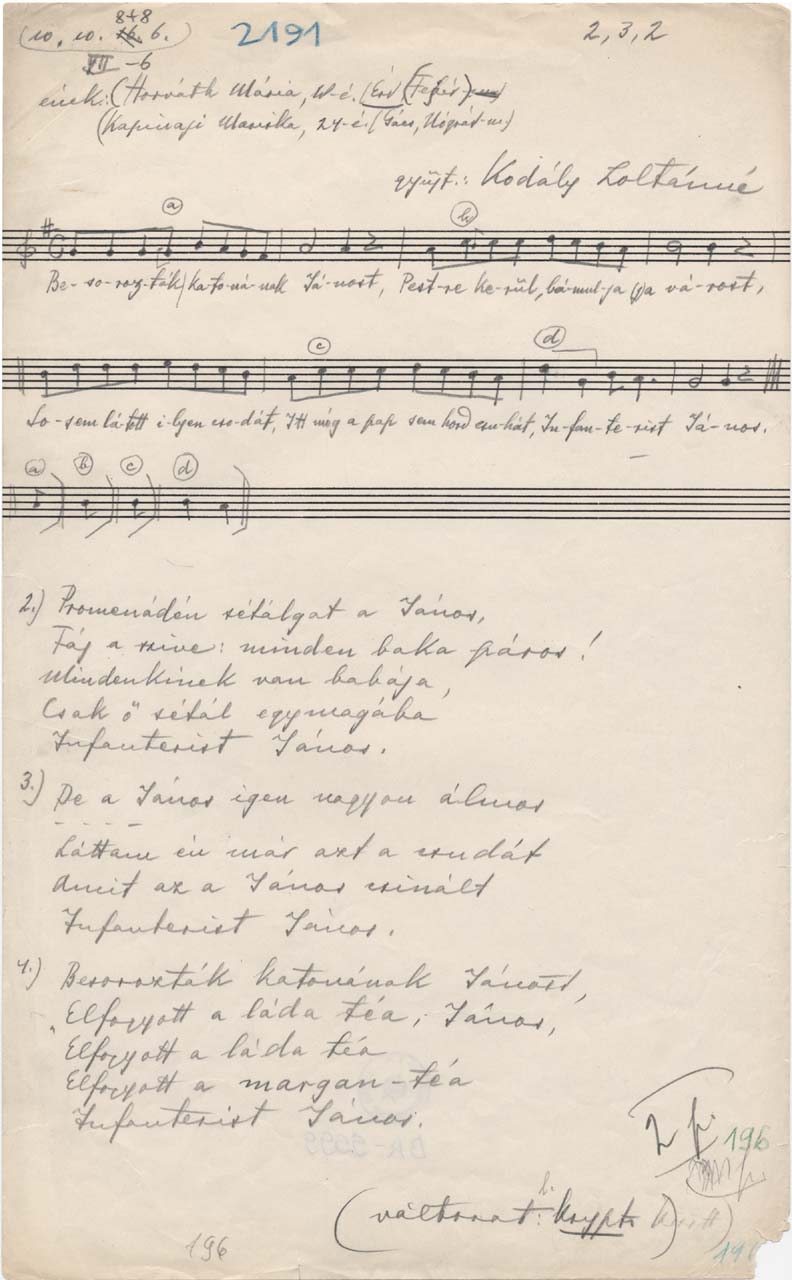 8+8
(10. 10. 16. 6.)
2191
2, 3, 2
VII -6
ének: (Horváth Mária, (Érd (Fejér)
(Kapinaji Mariska, 24-é. (Gács, Nógrád-m)
gyüjt.: Kodály Zoltánné
a
b
Be-so-roz-ták ka-to-ná-nak Já-nost, Pest-re ke-rül, bá-mul-ja a vá-rost,
c
d
So-sem lá-tott i-lyen cso-dát, Itt még a pap sem hord csu-hát, In-fan-te-rist Já-nos.
a b c d
2.) Promenádén sétálgat a János,
Fáj a szive: minden baka páros!
Mindenkinek van babája,
Csak ő sétál egymagába
Infanterist János.
3.) De a János igen nagyon álmos
- - - -
Láttam én már azt a csudát
Amit az a János csinált
Infanterist János.
4.) Besorozták katonának Jánost,
"Elfogyott a láda téa, János,
Elfogyott a láda téa
Elfogyott a margan-téa
Infanterist János.
196
(változat:
196